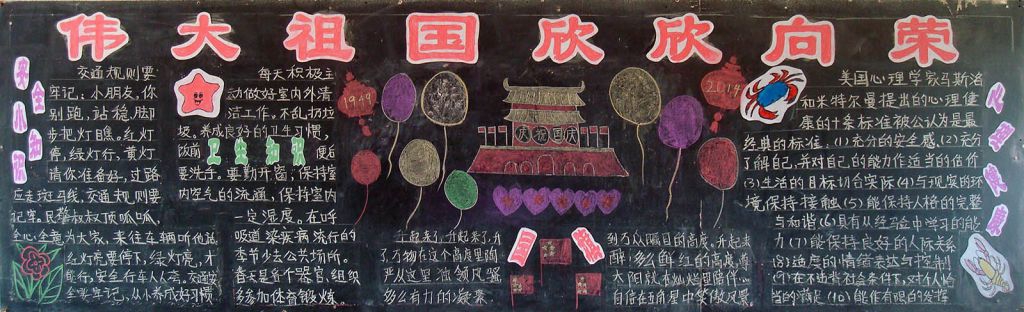 伟大祖国欣欣向荣
安全小知识
交通规则要
牢记:小朋友,你
别跑,站稳脚
步把灯瞧。红灯
停,绿灯行,黄灯
请你准备好,过路
应走斑马线,交通规则要
记牢。民警叔叔顶呱呱,
全心全意为大家,来往车辆听他话
红灯亮要停下,绿灯亮,才
能行,安全行车人人夸,交通安
全要牢记,从小养成好习惯
卫生知识
每天积极主
动做好室内外清
洁工作。不乱扔垃
圾。养成良好的卫生习惯,
饭前 便后
要洗手。要勤开窗,保持室
内空气的流通,保持室内
一定湿度。在呼
吸道染疾病流行的
季节少去公共场所。
春天是各个器官,组织
多参加体育锻炼。
1949
2014
庆祝国庆
国旗
升起来了,升起来了,升
了万物在这个高度里阔
严从这里独领风骚
多么有力的凝聚
到万众瞩目的高度。升起来
醉!多么鲜红的高度,尊
太阳就在灿烂里陪伴
自信在五角星中笑傲风
心理健康
美国心理学家马斯洛
和米特尔曼提出的心理健
康的十条标准被公认为是最
经典的标准。(1)充分的安全感,(2)充分
了解自己,并对自己的能力作适当的估价
(3)生活的目标切合实际(4)与现实的环
境保持接触(5)能保持人格的完整
与和谐(6)具有从经验中学习的能
力(7)能保持良好的人际关系
(8)适度的情绪表达与控制
(9)在不违背社会条件下,对个人恰
当的满足(10)能作有限的发挥